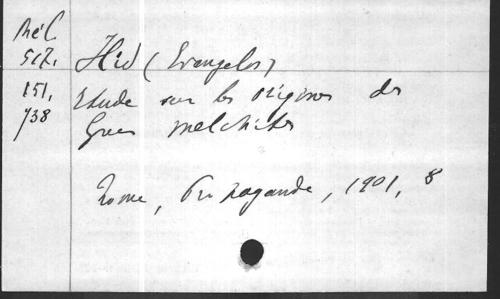 Mél.
517.
151,
738
Hid (Evangelos)
Etude sur les origines des
Grecs melchites
Rome, Propagande, 1901, 8